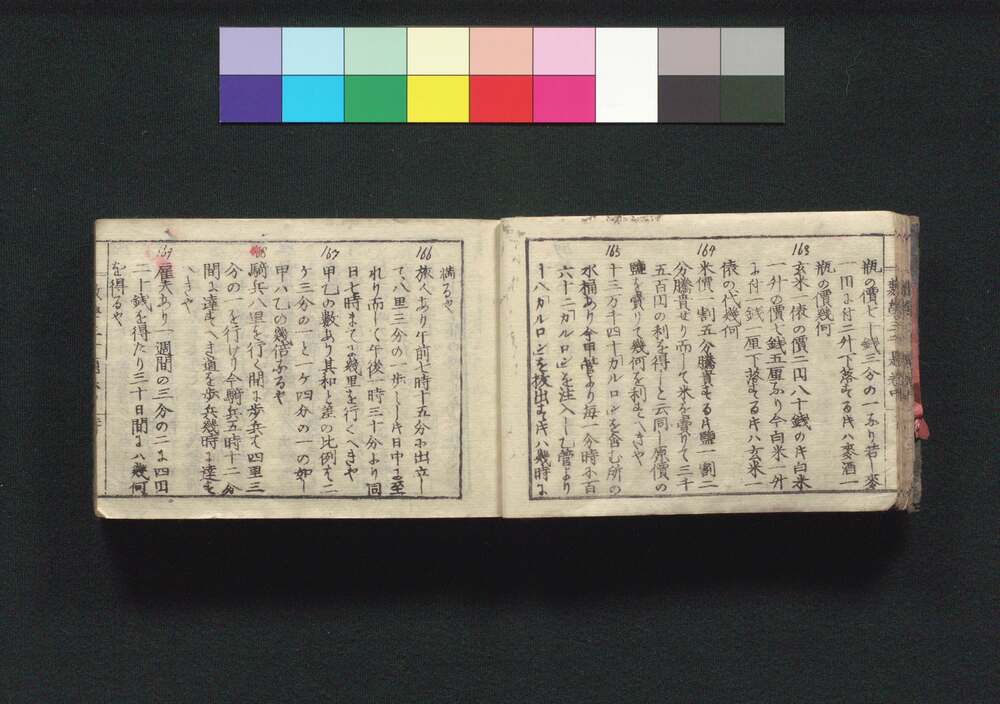 瓶の價七十錢三分の一なり若し麥
一円に付二升下落するｷハ麥酒一
瓶の價幾何
163
玄米一俵の價二円八十錢のｷ白米
一升の價七錢五厘なり今白米一升
に付一錢一厘下落するｷハ玄米一
俵の代幾何
164
米價一割五分騰貴するｷ鹽一割二
分騰貴せり而して米を賣りて三千
五百円の利を得しと云同し原價の
鹽を賣りて幾何を利すへきや
165
十三万千四十ガルロンを含む所の
水桶あり今甲管より毎一分時に百
六十二ガルロンを注入し乙管より
十八ガルロンを拔出すｷハ幾時に
満るや
166
旅人あり午前七時十五分に出立し
て八里三分の一歩しｷ日中に至
れり而して午後一時三十分より同
日七時まてに幾里を行くへきや
167
甲乙の数あり其和と差の比例は二
ケ三分の一と一ケ四分の一の如し
甲ハ乙の幾倍なるや
168
騎兵八里を行く間に歩兵は四里三
分の一を行けり今騎兵五時十二分
間に達すへき道を歩兵幾時に達す
へきや
169
雇夫あり一週間の三分の二に四円
二十錢を得たり三十日間にハ幾何
を得るや